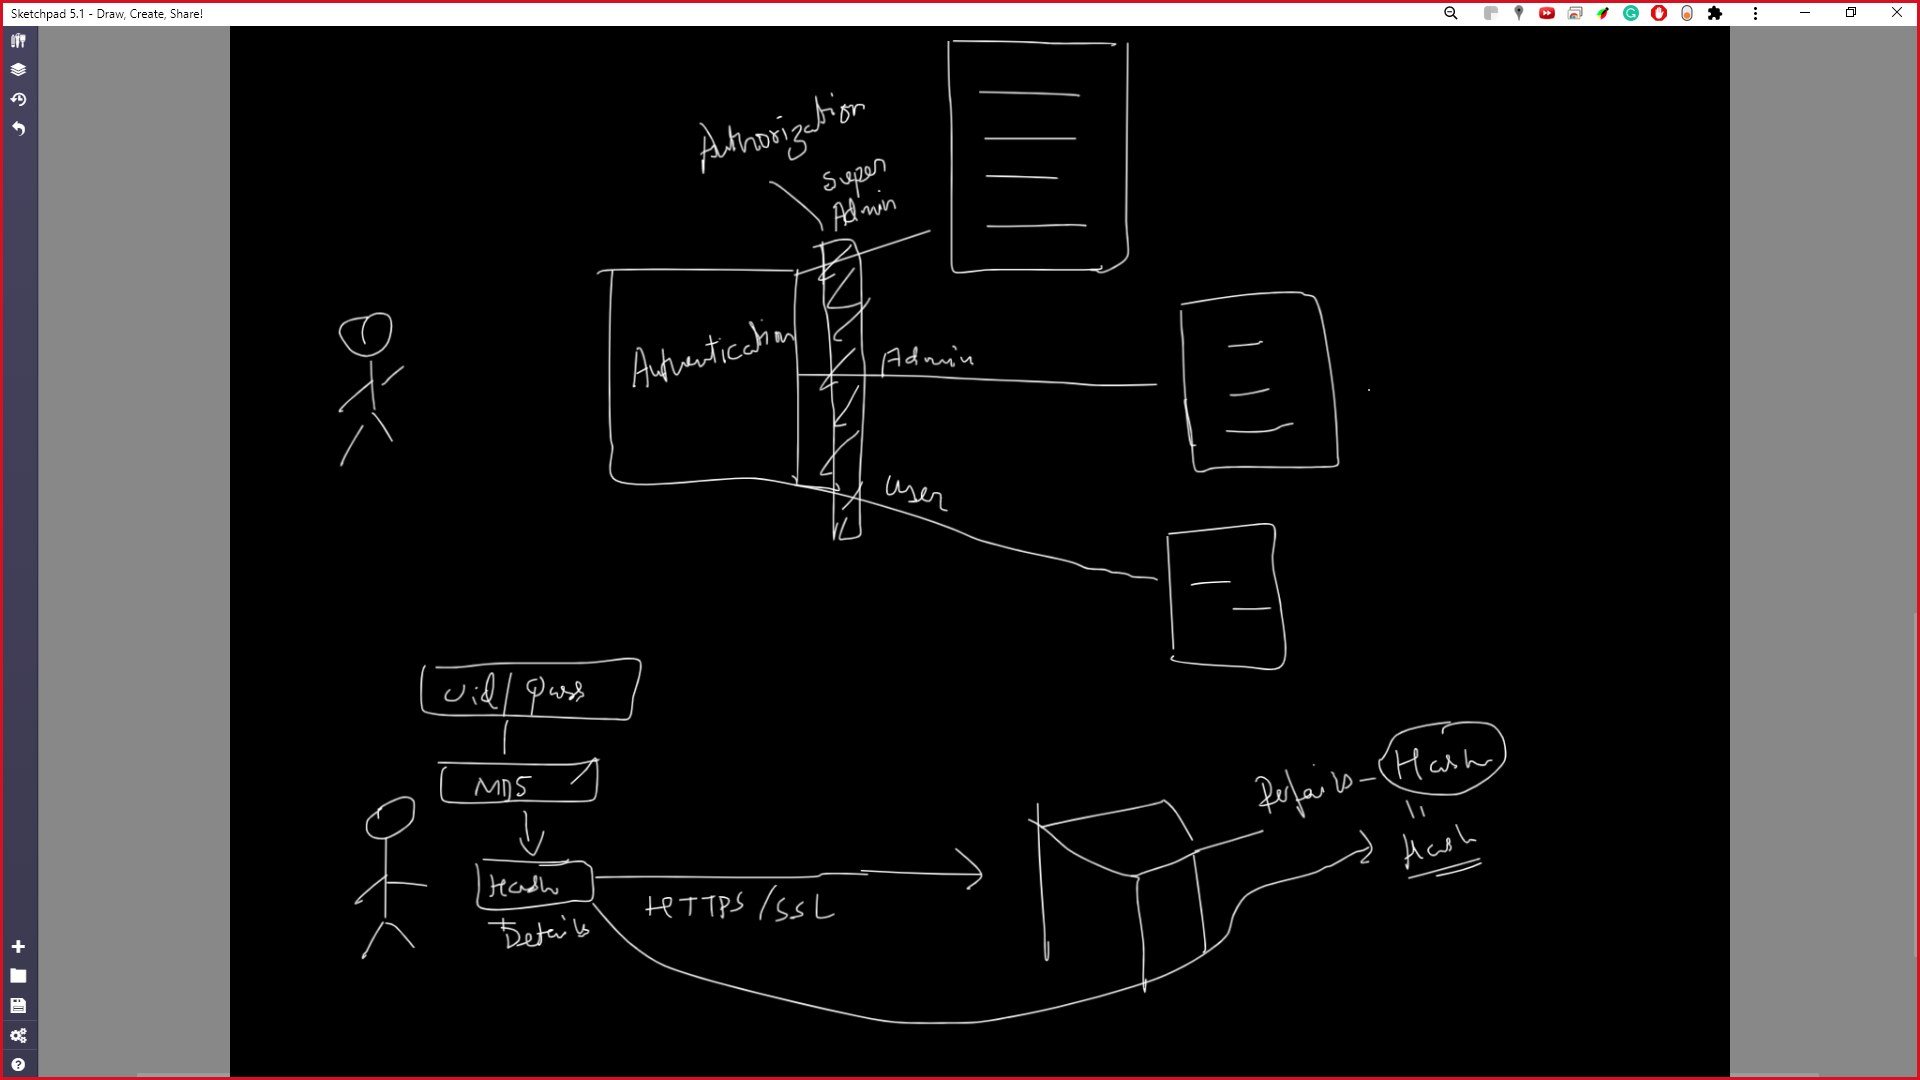 Sketchpad 5.1 - Draw, Create, Share!
Authorization
Super
Admin
Authentication
Admin
User
Uid/Pass
MD5
Hash
Details
HTTPS/SSL
Details - Hash
Hash